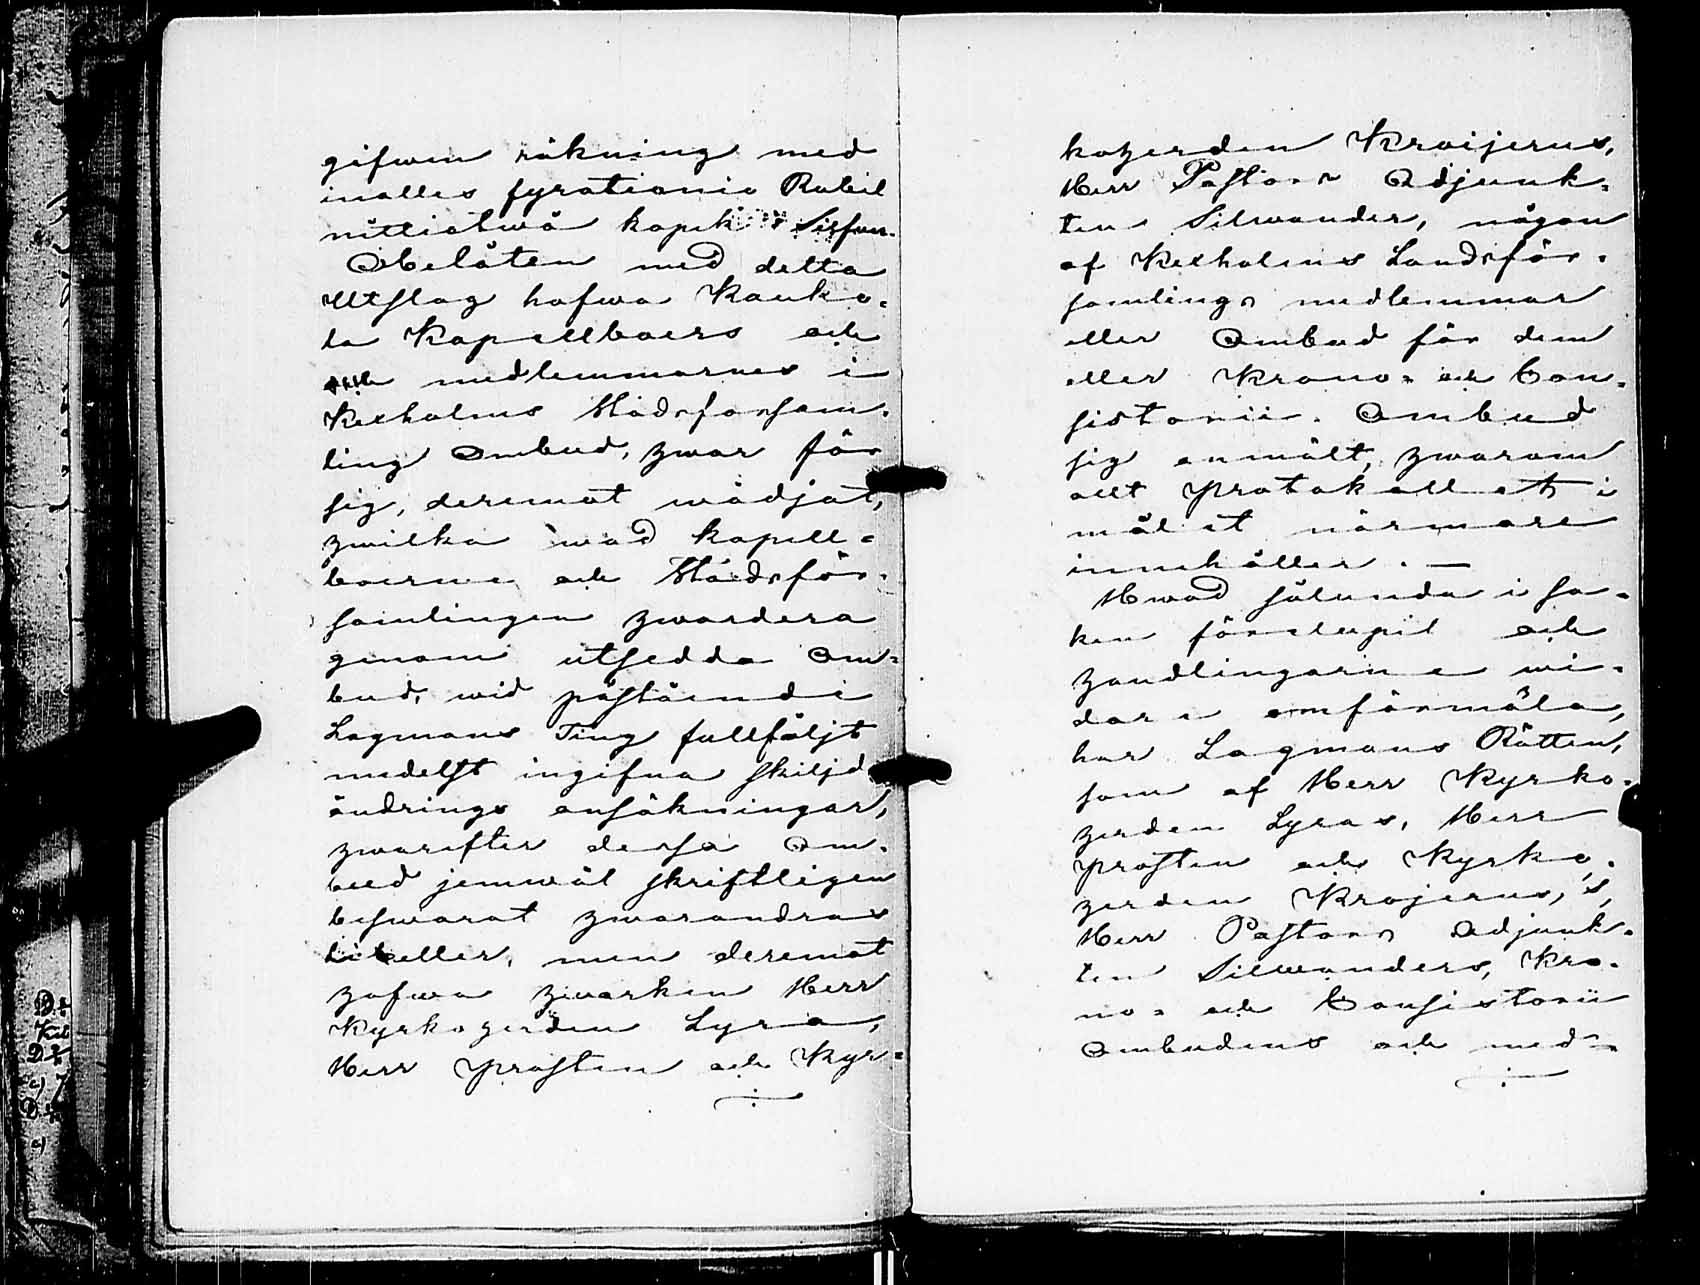 gifwen räkning med
inalles fyrationio Rubel
nittiotwå kopek Silfwer.
Obelåten med detta
Utslag hafwa Kauko-
la Kapellboers och
medlemmarnes i
Kexholms Stadsförsam-
ling Ombud, hwar för
sig, deremot wädjat,
hwilka wad Kapell-
boerne och Stadsför-
samlingen hwardera
genom utsedda Om-
bud, wid påstående
Lagmans Ting fullföljt
medelst ingifna skiljd
ändrings ansökningar,
hwarefter dessa Om-
bud jemwäl skriftligen
beswarat hwarandras
libeller, men deremot
hafwa hwarken Herr
Kyrkoherden Lyra,
Herr Prosten och Kyr-
koherden Kroijerus,
Herr Pastors Adjunk-
ten Silwander, någon
af Kexholms Landsför-
samlings medlemmar
eller Ombud för dem
eller Krono- och Con-
sistorii- Ombud
sig anmält, hwarom
allt Protokollet i
målet närmare
innehåller. —
Hwad sålunda i sa-
ken förelupit och
handlingarne wi-
dare omförmäla,
har Lagmans Rätten,
som af Herr Kyrko-
herden Lyras, Herr
Prosten och Kyrko-
herden Krojerus,'s,
Herr Pastors Adjunk-
ten Silwanders, Kro-
no- och Consistorii
Ombudens och med-